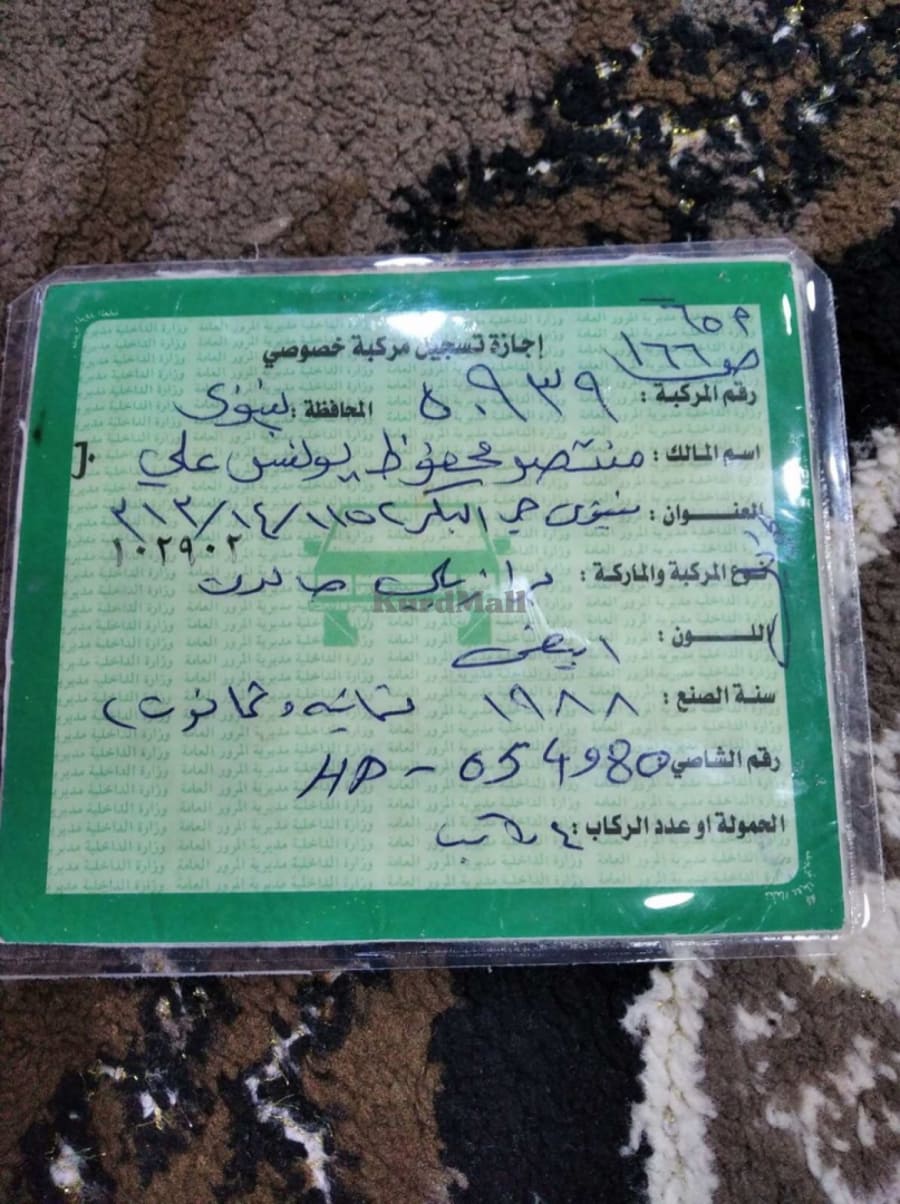 م ٦٥
ص ١٦٦
إجازة تسجيل مركبة خصوصي
رقم المركبة : ٥٠٩٣٩ المحافظة : نينوى
اسم المالك : منتصر محفوظ يونس علي
العنوان : نينوى حي البكر ٣١٣/١٤/١١٥٢
١٠٢٩٠٢
نوع المركبة والماركة : برازيلي صالون
KurdMall
اللـــون : ابيض
سنة الصنع : ١٩٨٨ ثمانية وثمانون
رقم الشاصي HP - 054980
الحمولة او عدد الركاب : ٤ راكب